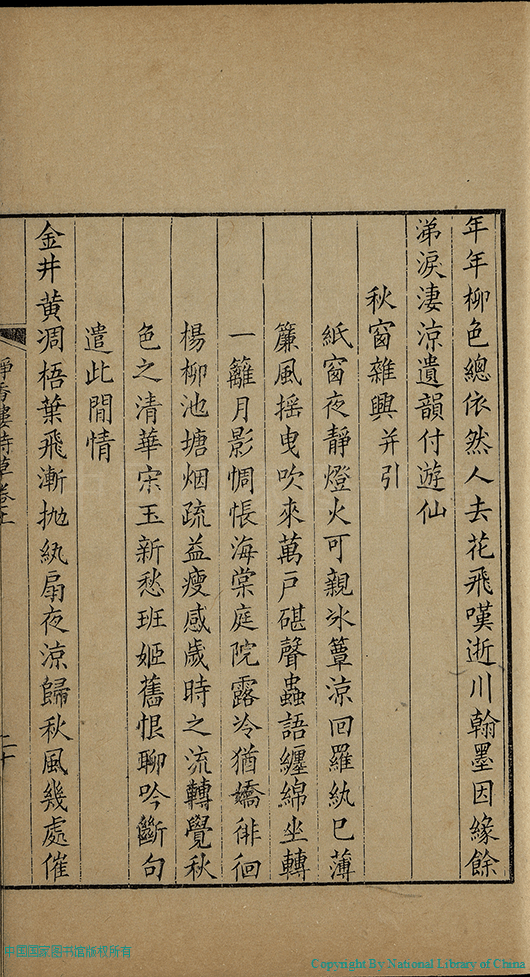 年年柳色總依然人去花飛嘆逝川翰墨因緣餘
涕淚淒涼遺韻付遊仙
秋窗雜興并引
紙窗夜靜燈火可親冰簟涼回羅紈已薄
簾風搖曳吹來萬戶碪聲蟲語纏綿坐轉
一籬月影惆悵海棠庭院露冷猶嬌徘徊
楊柳池塘烟疏益瘦感歲時之流轉覺秋
色之清華宋玉新愁班姬舊恨聊吟斷句
遣此閒情
金井黃凋梧葉飛漸拋紈扇夜涼歸秋風幾處催
香樓詩草卷
二十
中国国家图书馆版权所有
Copyright By National Library of China